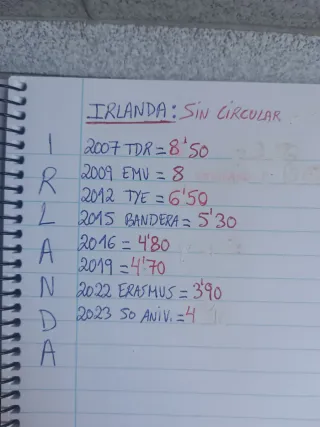 IRLANDA: SIN CIRCULAR
2007 TDR = 8'50
2009 EMU = 8
2012 TYE = 6'50
2015 BANDERA = 5'30
2016 = 4'80
2019 = 4'70
2022 ERASMUS = 3'90
2023 50 ANIV. = 4
I
R
L
A
N
D
A